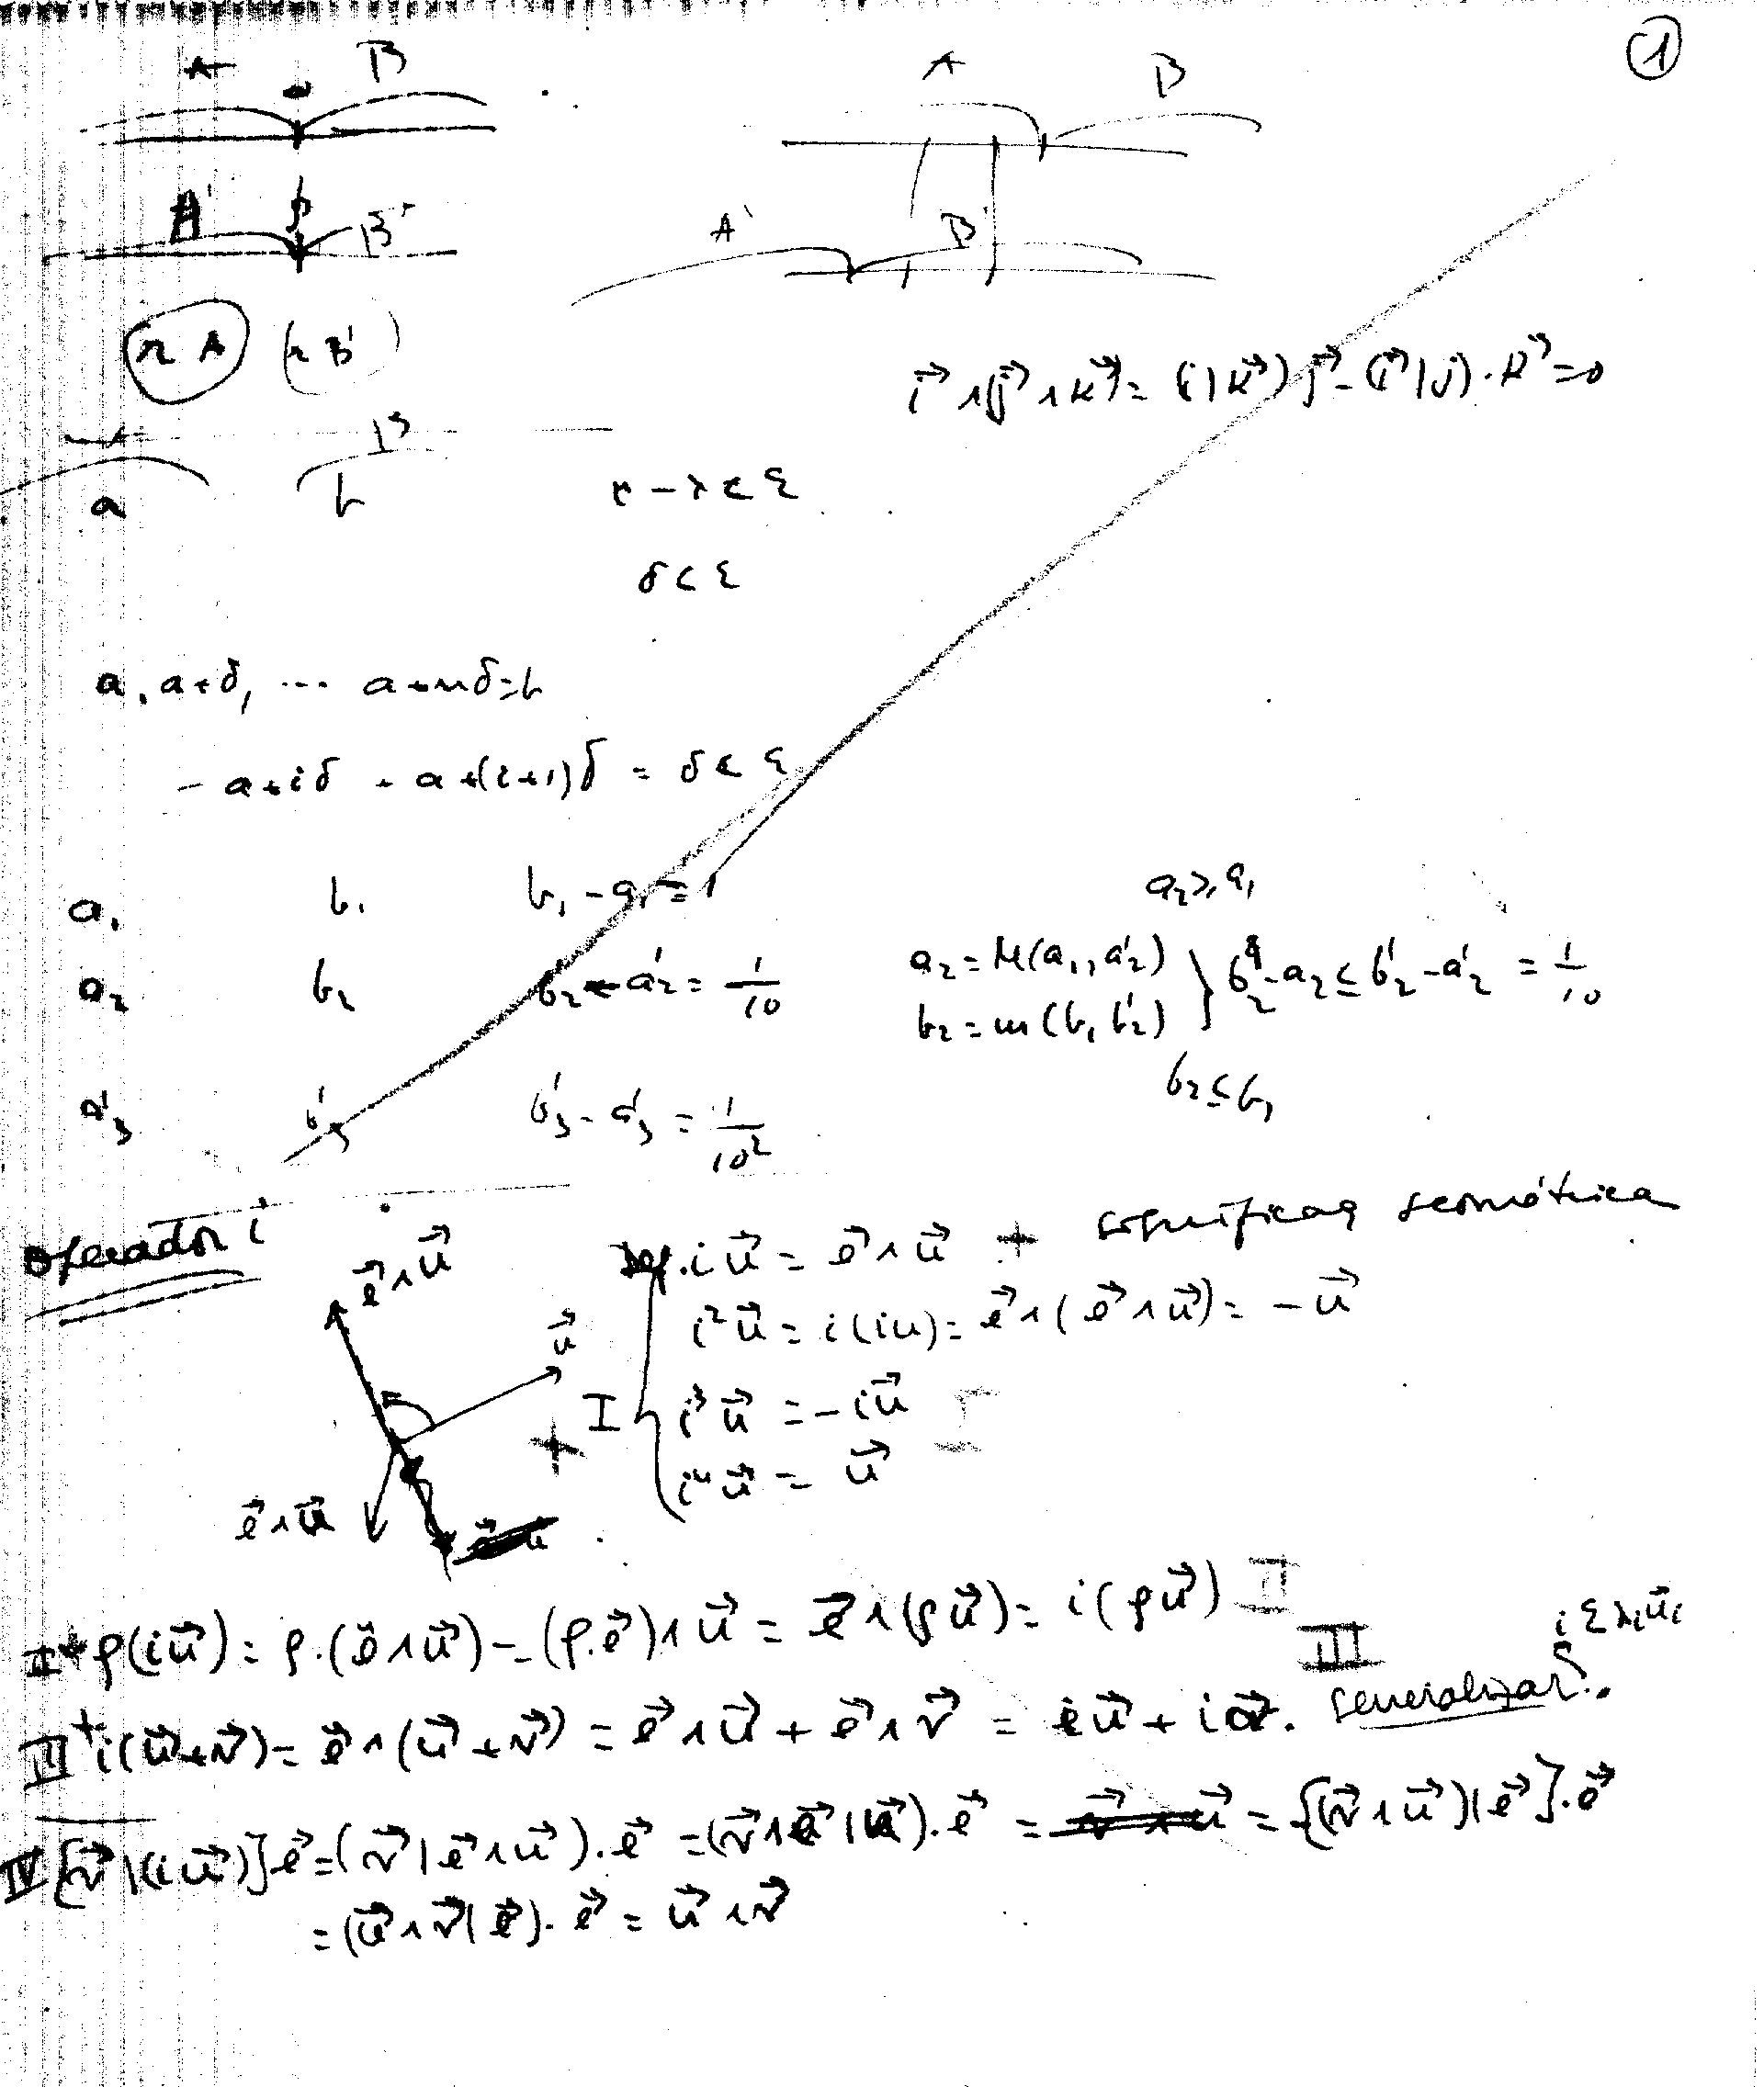 ①
A B A B
A' B' A' B'
r A (r B')
i⃗ ∧ (j⃗ ∧ k⃗) = (i | k⃗) j⃗ - (i⃗ | j) · k⃗ = 0
A B
a b
r - r < ε
δ < ε
a, a + δ, ... a + nδ = b
- a + iδ + a + (i+1)δ = δ < ε
a₁ b₁ b₁ - a₁ = 1 a₂ ⩾ a₁
a₂ b₂ b'₂ - a'₂ = 1/10 a₂ = M(a₁, a'₂) } b₂ - a₂ ≤ b'₂ - a'₂ = 1/10
b₂ = m(b₁ b'₂)
b₂ ≤ b₁
a'₃ b'₃ b'₃ - a'₃ = 1/10²
Operador i
e⃗ ∧ u⃗
u⃗
e⃗ ∧ u⃗
Def. i u⃗ = e⃗ ∧ u⃗ + geométrica
i² u⃗ = i(iu) = e⃗ ∧ (e⃗ ∧ u⃗) = - u⃗
I { i³ u⃗ = - i u⃗ I
i⁴ u⃗ = u⃗
II + ρ(i u⃗) = ρ · (e⃗ ∧ u⃗) = (ρ · e⃗) ∧ u⃗ = e⃗ ∧ (ρ u⃗) = i(ρ u⃗) II
III i Σ λᵢ u⃗ᵢ
III + i(u⃗ + v⃗) = e⃗ ∧ (u⃗ + v⃗) = e⃗ ∧ u⃗ + e⃗ ∧ v⃗ = i u⃗ + i v⃗. generalizar.
IV [v⃗ | (i u⃗)] e⃗ = (v⃗ | e⃗ ∧ u⃗) · e⃗ = (v⃗ ∧ e⃗ | u⃗) · e⃗ = v⃗ ∧ u⃗ = {(v⃗ ∧ u⃗) | e⃗} · e⃗
= (u⃗ ∧ v⃗ | e⃗) · e⃗ = u⃗ ∧ v⃗